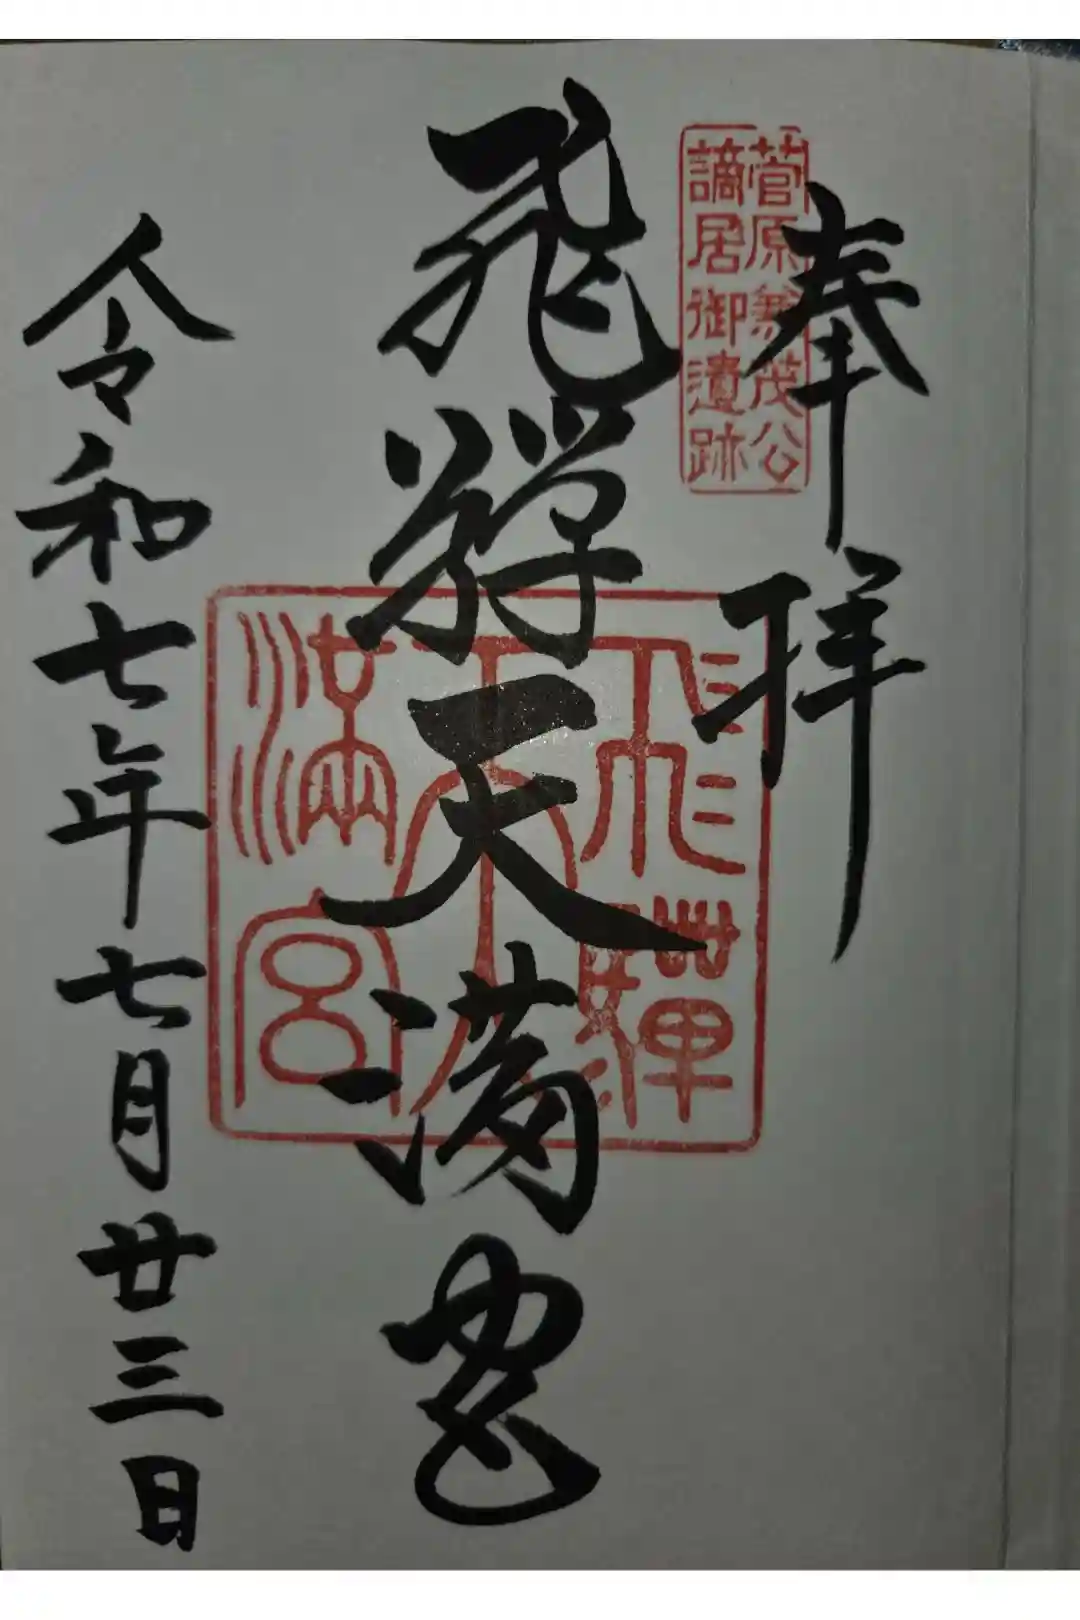 奉拝
菅原兼茂公
謫居御遺跡
飛騨天満宮
飛騨
天
満宮
令和七年七月廿三日